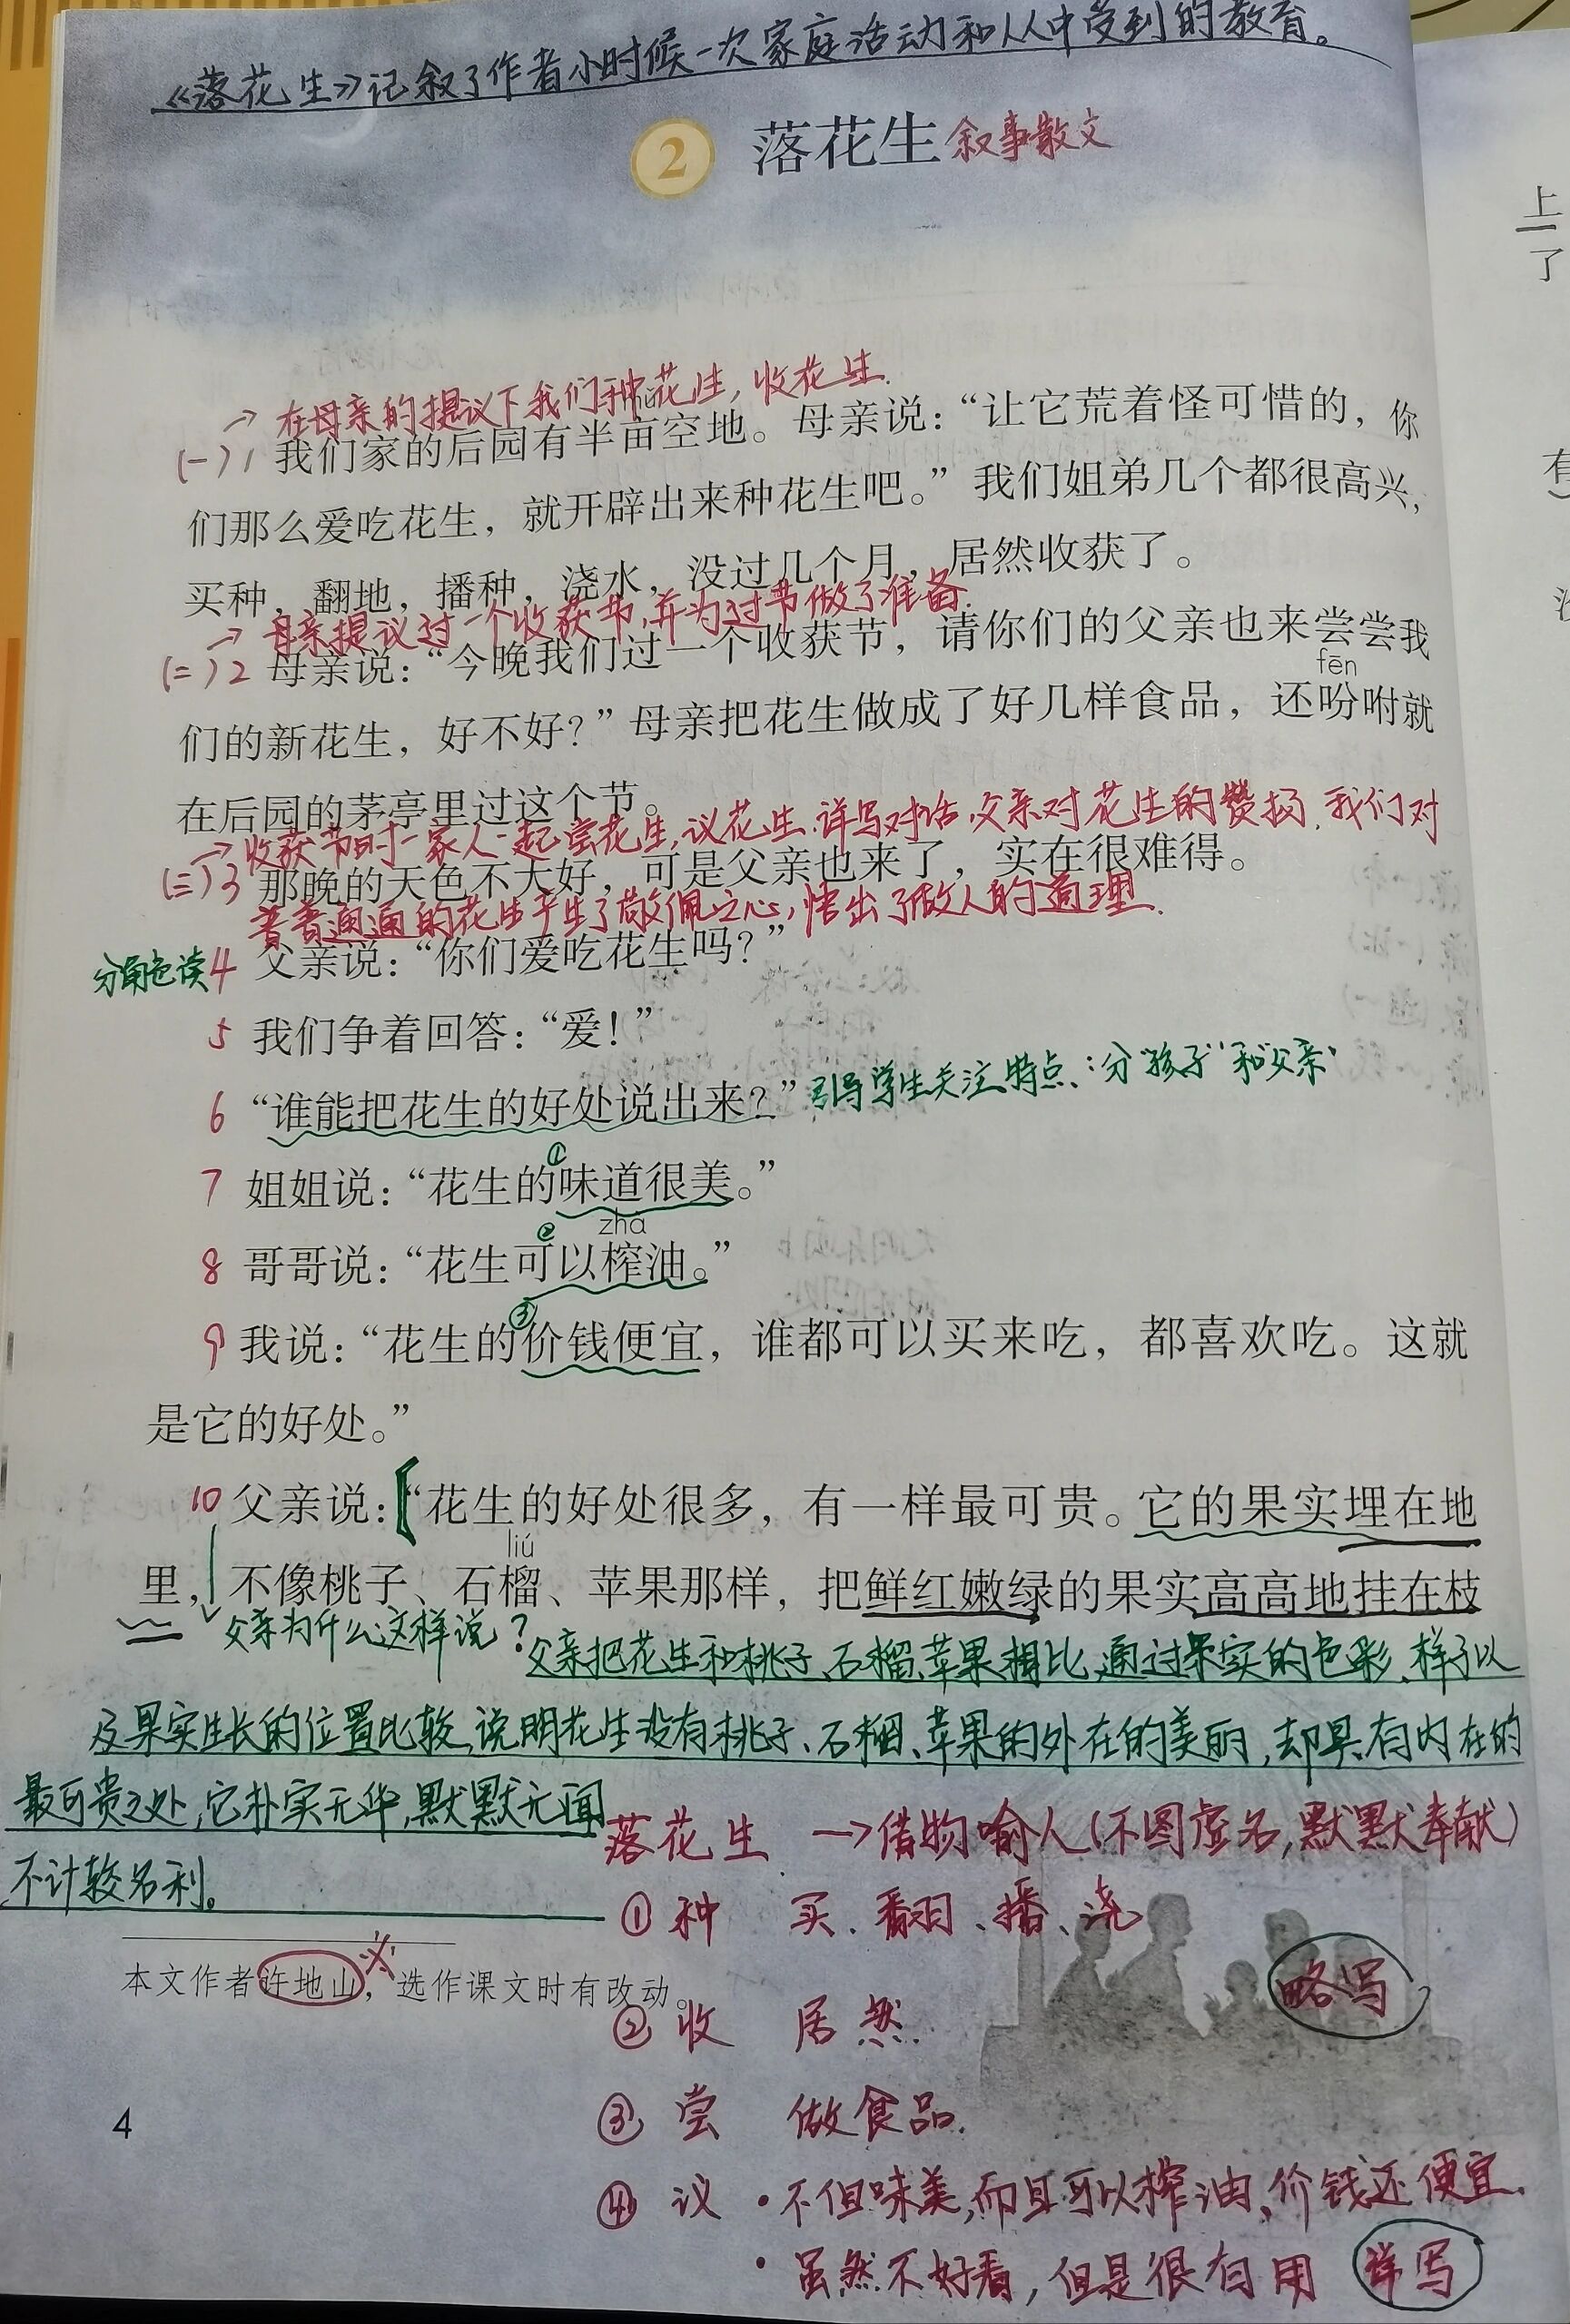 《落花生》记叙了作者小时候一次家庭活动和从中受到的教育。
2 落花生 叙事散文
→在母亲的提议下我们种花生，收花生.
(一)1 我们家的后园有半亩空地。母亲说：“让它荒着怪可惜的，你
们那么爱吃花生，就开辟出来种花生吧。”我们姐弟几个都很高兴，
买种，翻地，播种，浇水，没过几个月，居然收获了。
→母亲提议过一个收获节，并为过节做了准备.
(二)2 母亲说：“今晚我们过一个收获节，请你们的父亲也来尝尝我
fēn
们的新花生，好不好？”母亲把花生做成了好几样食品，还吩咐就
在后园的茅亭里过这个节。
→收获节时一家人一起尝花生,议花生.详写对话,父亲对花生的赞扬.我们对
(三)3 那晚的天色不大好，可是父亲也来了，实在很难得。
普普通通的花生产生了敬佩之心,悟出了做人的道理.
分角色读4 父亲说：“你们爱吃花生吗？”
5 我们争着回答：“爱！”
6 “谁能把花生的好处说出来？”引导学生关注特点:分“孩子”和“父亲”
①
7 姐姐说：“花生的味道很美。”
② zhà
8 哥哥说：“花生可以榨油。”
③
9 我说：“花生的价钱便宜，谁都可以买来吃，都喜欢吃。这就
是它的好处。”
10 父亲说：“花生的好处很多，有一样最可贵。它的果实埋在地
liú
里，不像桃子、石榴、苹果那样，把鲜红嫩绿的果实高高地挂在枝
父亲为什么这样说？
父亲把花生和桃子、石榴、苹果相比,通过果实的色彩、样子以
及果实生长的位置比较,说明花生没有桃子、石榴、苹果的外在的美丽,却具有内在的
最可贵之处,它朴实无华,默默无闻
不计较名利。
落花生 →借物喻人(不图虚名,默默奉献)
①种 买、翻、播、浇
本文作者许地山，选作课文时有改动。
略写
②收 居然
③尝 做食品.
4
④议 ·不但味美,而且可以榨油,价钱还便宜.
·虽然不好看,但是很有用 详写
上
了
有